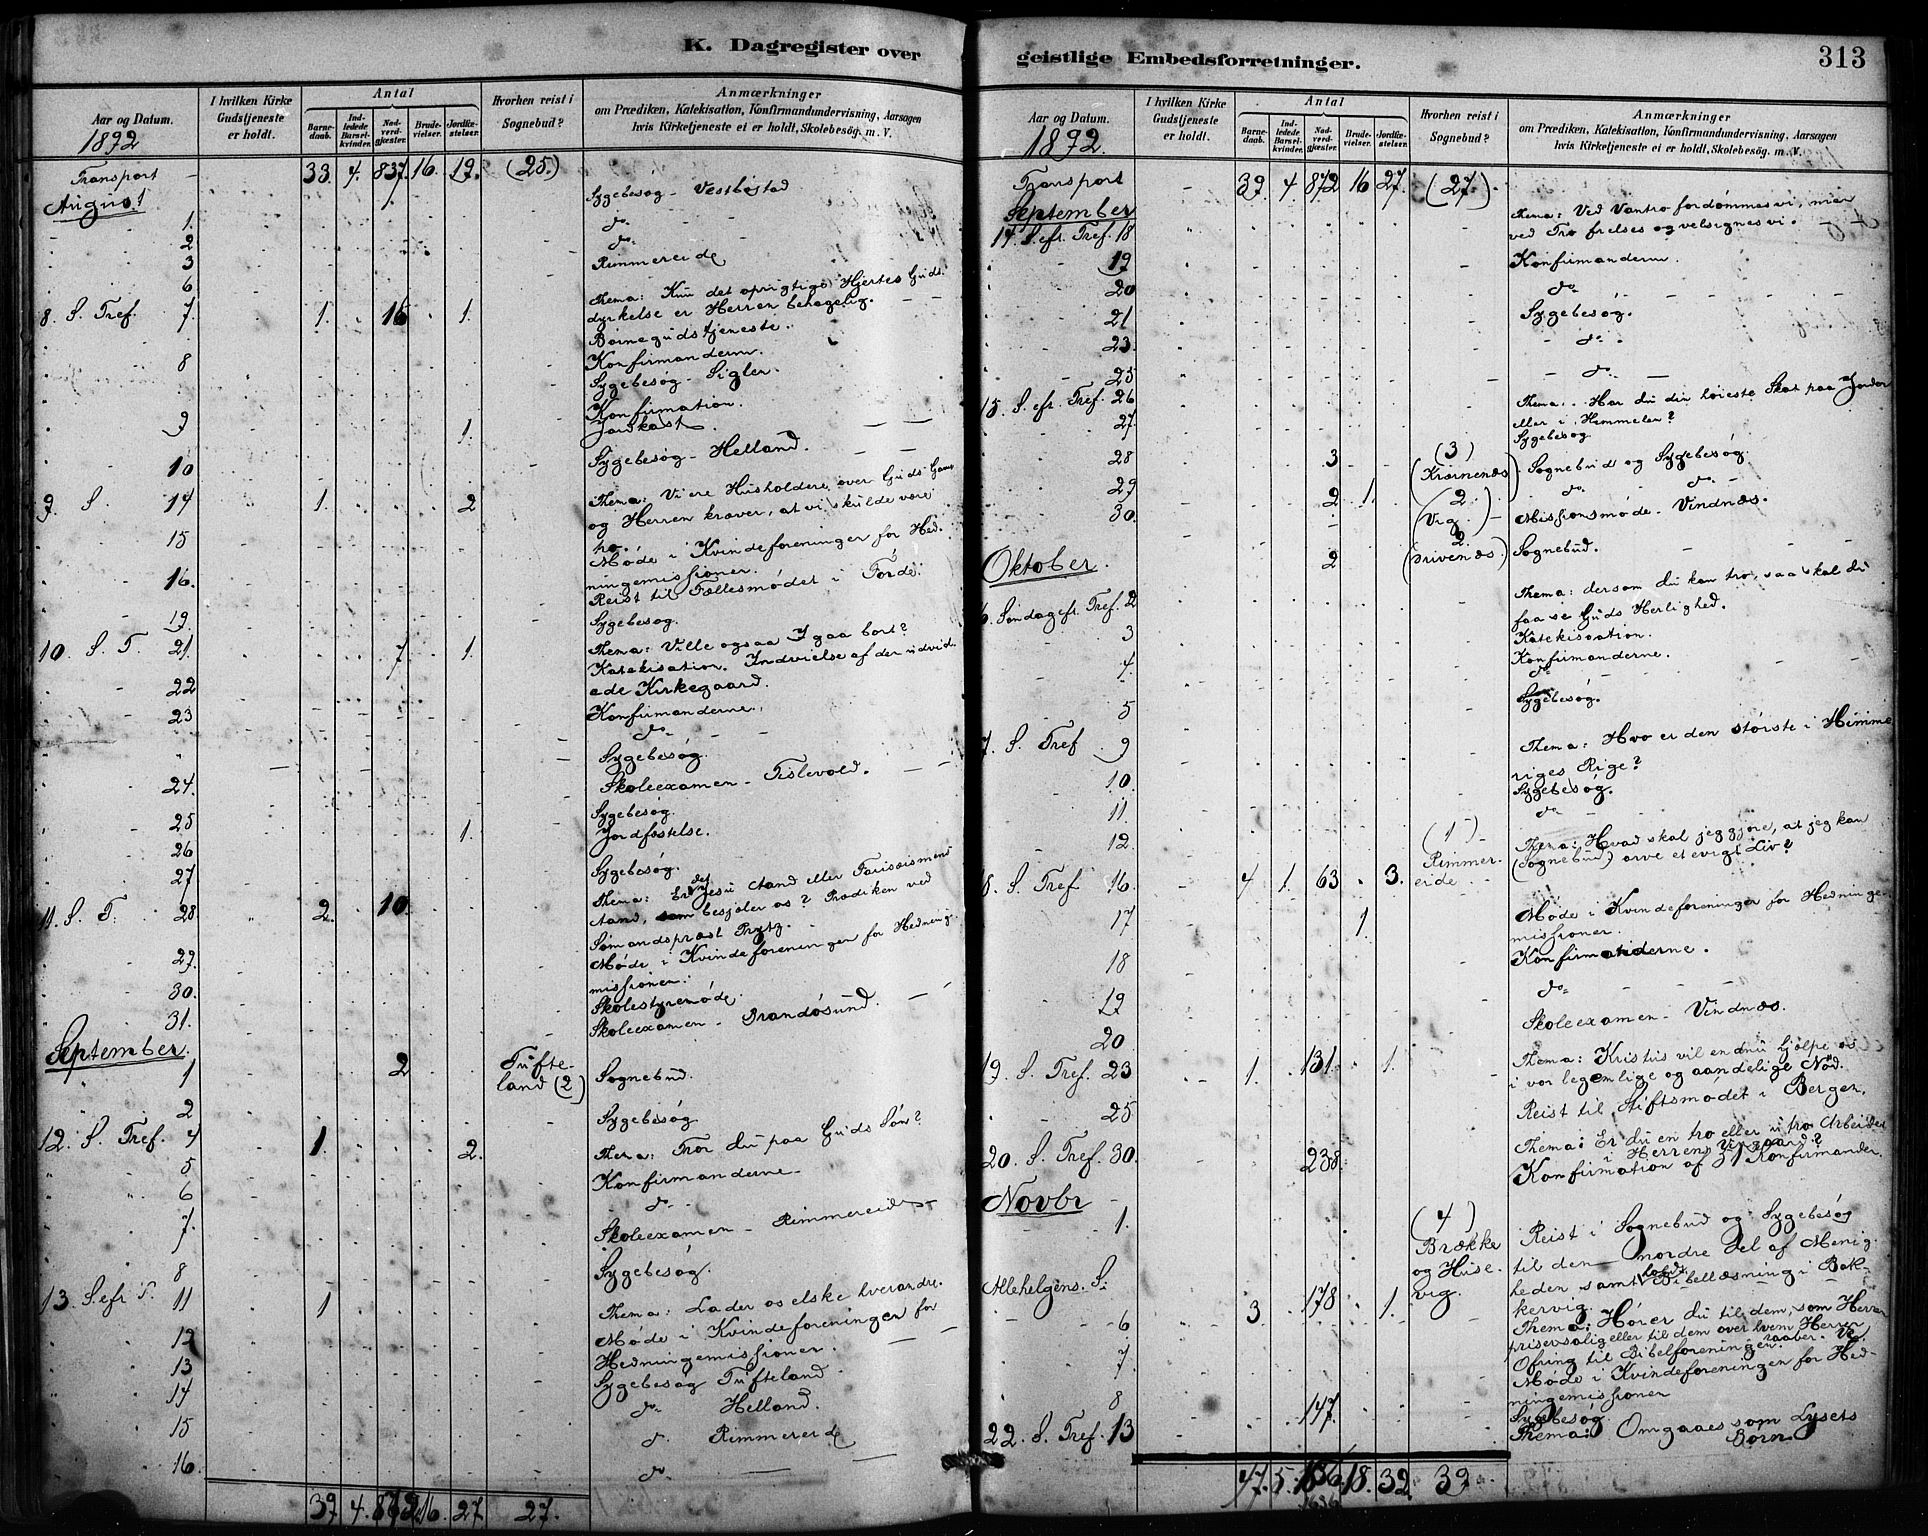 K. Dagregister over
Aar og Datum.
1892
I hvilken Kirke Gudstjeneste er holdt.
Antal
Barnedaab.
Indledede Barselkvinder.
Nadverdgjester.
Brudevielser.
Jordfæstelser.
Hvorhen reist i Sognebud?
Anmærkninger
om Prædiken, Katekisation, Konfirmandundervisning, Aarsagen
hvis Kirketjeneste ei er holdt, Skolebesög. m. V.
Transport 33. 4. 837. 16. 19. (25.)
August
1. Sygebesøg - Vestbøstad
2 do
3 do
6 Rimmereide
8. S. Tref. 7. 1. 16 1. Thema: Kun det oprigtige Hjertes Guds
dyrkelse er Herren behagelig.
Børnegudstjeneste.
8 Konfirmanderne.
Sygebesøg - Sigler.
Konfirmation.
9 1. Jordkast.
10 Sygebesøg - Helland.
9. S. 14 1. 2 Thema: Vi ere Husholdere over Guds Gaver
og Herren kræver, at vi skulde være
tro.
15 Møde i Kvindeforeninger for Hed-
ningemissionen.
16. Reist til Fællesmødet i Førde.
19. Sygebesøg.
10. S. T. 21. 7 1. Thema: Ville ogsaa I gaa bort?
Katekisation. Indvielse af den udvid-
ede Kirkegaard.
22 Konfirmanderne.
23 do
Sygebesøg.
24. Skoleexamen - Tislevold.
25 Sygebesøg.
26 1. Jordfæstelse.
27 Sygebesøg.
11. S. T. 28. 2. 10. Thema: Er det Jesu Aand eller Farisæismens
Aand, som besjæler os? Prædiken ved
Sømandspræst Brytz.
29. Møde i Kvindeforeningen for Hedning-
missionen.
30. Skolestyremøde.
31. Skoleexamen - Brandøsund.
September.
1 2 Tufte-
land (2) Sognebud.
2 Sygebesøg
12. S. Tref. 4 1. 2. Thema: Tror du paa Guds Søn?
5 Konfirmanderne
6 do
7. Skoleexamen - Rimmereide
8 Sygebesøg.
13. S. efr T. 11 1 Thema: Lader os elske hverandre.
12 Møde i Kvindeforeninger for
Hedningemissionen.
13 Sygebesøg Tufteland
14 do Helland.
15 do Rimmereide
16. do
39 4. 872. 16. 27. 27.
geistlige Embedsforretninger.
313
Aar og Datum.
1892.
I hvilken Kirke Gudstjeneste er holdt.
Antal
Barnedaab.
Indledede Barselkvinder.
Nadverdgjester.
Brudevielser.
Jordfæstelser.
Hvorhen reist i Sognebud?
Anmærkninger
om Prædiken, Katekisation, Konfirmandundervisning, Aarsagen
hvis Kirketjeneste ei er holdt, Skolebesög. m. V.
Transport 39. 4. 872 16 27. (27.)
September
14 S. efr. Tref. 18 Thema: Ved Vantro fordømmes vi, men
ved Tro frelses og velsignes vi.
19 Konfirmanderne.
20 do
21 Sygebesøg.
23 do
25 do
15. S. efr. Tref. 26 Thema: Har du din høieste Skat paa Jorden
eller i Himmelen?
27. Sygebesøg
28 3 (3) Sognebud og Sygebesøg.
29 2 1. 2 do do
30. (Vig.) Missionsmøde - Vindnæs.
2 2. Sognebud.
Oktober.
6. Søndag efr. Tref. 2 Thema: dersom du kan tro, saa skal du
faa se Guds Herlighed.
3 Katekisation.
4. Konfirmanderne.
do
5 Sygebesøg.
7. S. Tref 9 Thema: Hvo er den største i Himme
riges Rige?
10. Sygebesøg.
11. do
12. (1) Thema: Hvad skal jeg gjøre, at jeg kan
(Sognebud) arve et evigt Liv?
8. S. Tref 16. 4 1. 63 3. Rimmer-
eide
17 1 Møde i Kvindeforeninger for Hedninge-
missionen.
18 Konfirmanderne.
19 do
20 Skoleexamen - Vindnæs.
19. S. Tref. 23 1. 131. 1. Thema: Kristus vil endnu hjælpe os
i vor legemlige og aandelige Nød.
25 Reist til Stiftsmødet i Bergen.
20. S. Tref. 30. 238. Thema: Er du en tro eller utro Arbeider
i Herrens Vingaard?
Konfirmation af 31 Konfirmander.
Novbr
1. (4) Brække og Huse-
vig. Reist i Sognebud og Sygebesøg
til den nordre Del af Menig-
heden samt holdt Bibellæsning i Bak-
kervig.
Allehelgens. S.
6 3. 178 1. Thema: Hører du til dem, som Herren
priser salig eller til dem over hvem Herren
raaber. Ve.
Ofring til Bibelforeningen.
7 Møde i Kvindeforeningen for Hed-
ningemissionen
8 Sygebesøg.
22. S. Tref. 13 147. Thema: Omgaaes som Lysets
Børn.
47. 5. 18. 32. 39.
1636